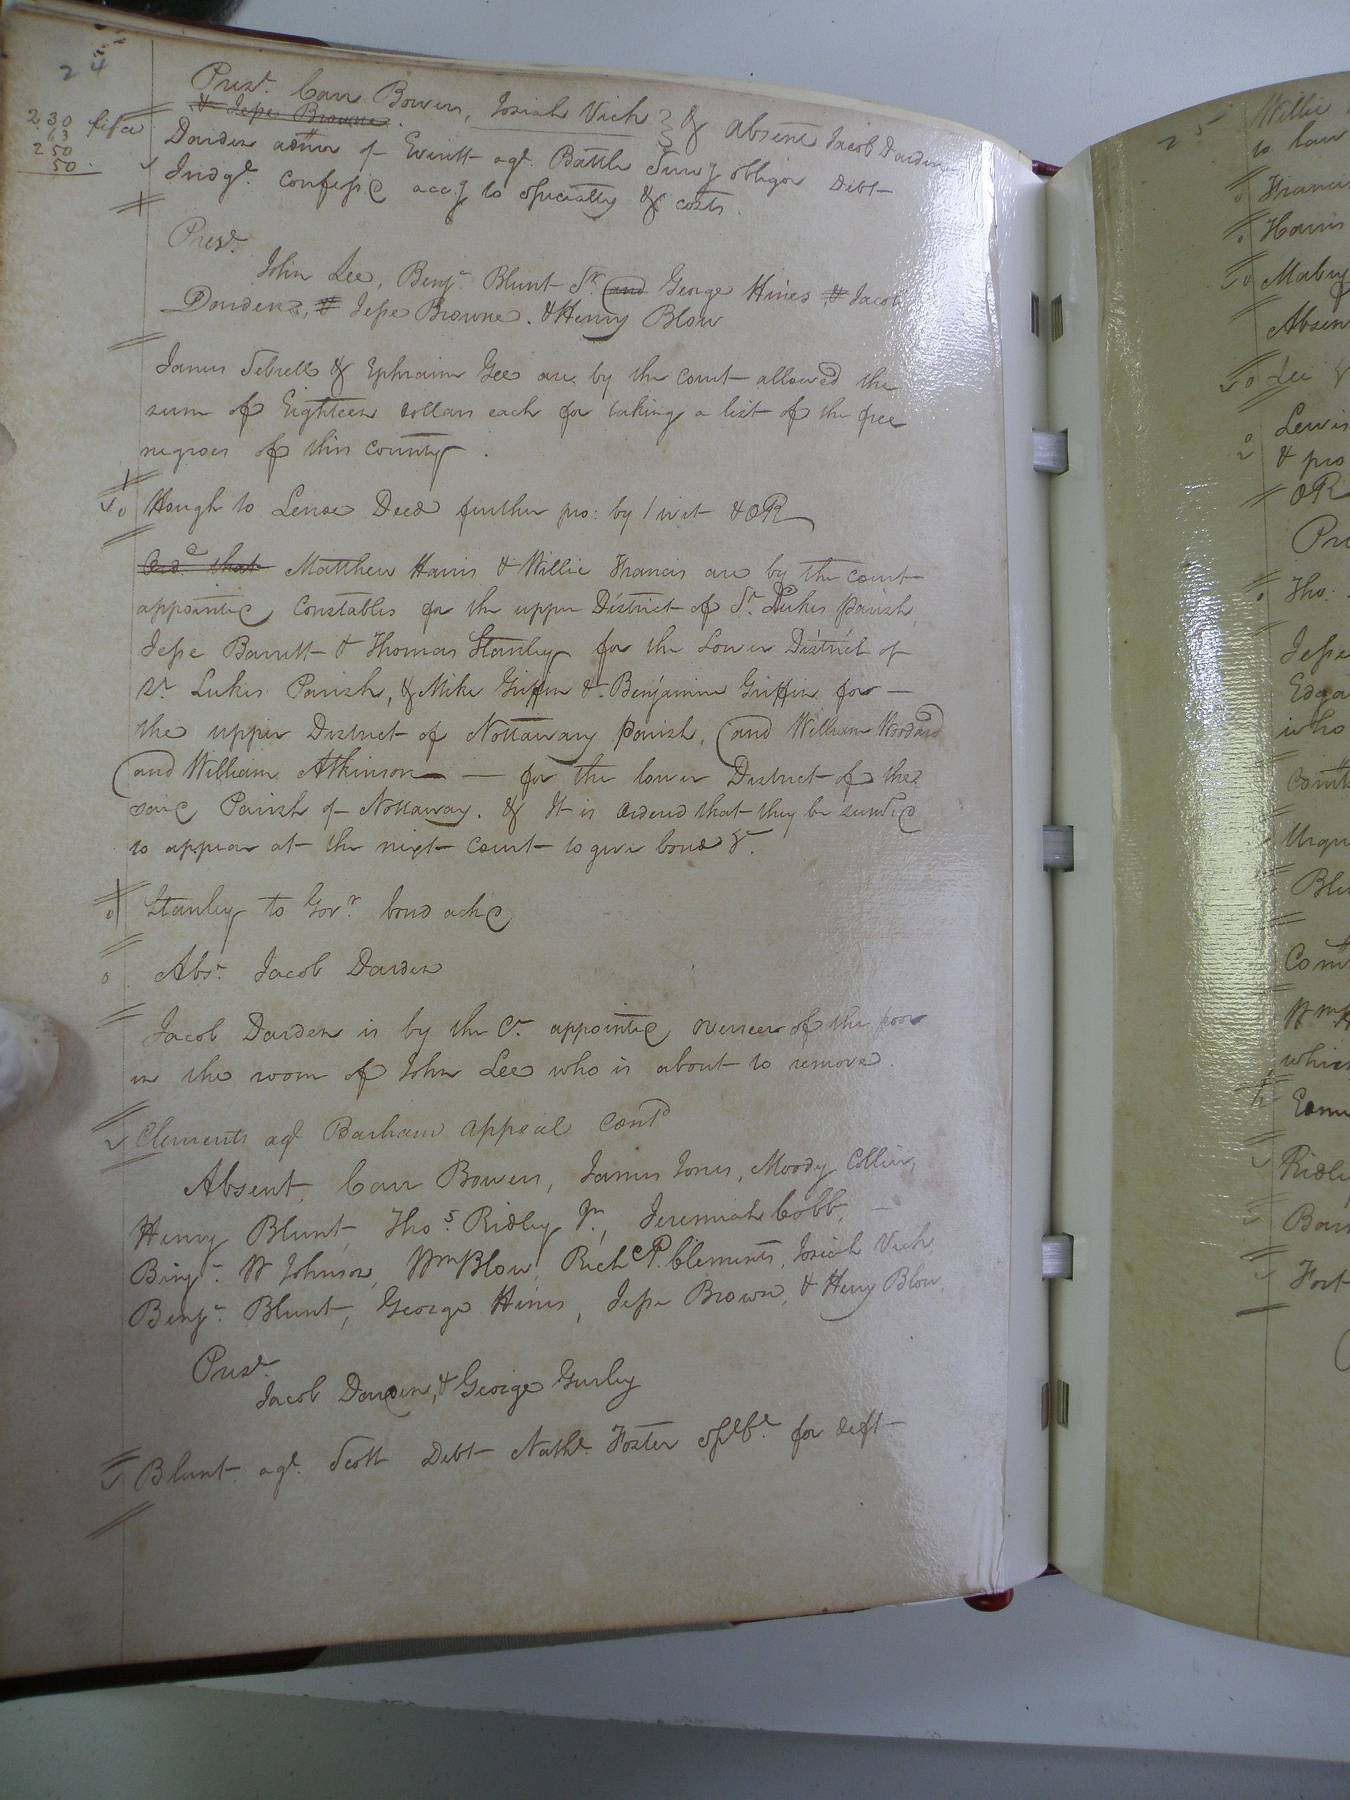 24
Presᵗ. Carr Bowers, Josiah Vick } & absent Jacob Darden
& Jesse Browne.
230 fi fa
63
250
50.
Darden admr of Everitt agt. Battle Survg obligor Debt
Judgt. confessed accg to specialty & costs.
Presᵗ.
John Lee, Benjⁿ Blunt Sr. and George Hines & Jacob
Darden, & Jesse Browne. & Henry Blow
James Sebrell & Ephraim Gee are by the court allowed the
sum of Eighteen dollars each for taking a list of the free
negroes of this county.
Hough to Lenoe Deed further pro: by 1 wit & OR
Ordd that Matthew Harris & Willie Francis are by the court
appointed Constables for the upper District of St. Lukes Parish,
Jesse Barrett & Thomas Stanley for the Lower District of
St. Lukes Parish, & Mike Griffin & Benjamin Griffin for
the upper District of Nottaway Parish, and William Woodard
and William Atkinson — for the lower District of the
said Parish of Nottaway. & It is ordered that they be sumd
to appear at the next Court to give bond &c.
Stanley to Govr. bond ackd
Abst. Jacob Darden
Jacob Darden is by the Ct. appointed overseer of the poor
in the room of John Lee who is about to remove.
Clements agt Barham appeal contd
Absent, Carr Bowers, James Jones, Moody Collier,
Henry Blunt, Thos Ridley Jn, Jeremiah Cobb,
Benjⁿ. W Johnson, Wm Blow, Richd P. Clements, Josiah Vick,
Benjⁿ. Blunt, George Hines, Jesse Brown, & Henry Blow.
Presᵗ.
Jacob Darden, & George Gurley
Blunt agt. Scott Debt Nathl. Foster splbl. for deft
25
Willie
to
Francis
Harris
Absen
Lee &
Lewis
& pro
OR
Tho:
Jesse
Edga
who
Urqu
Blu
Com
Wm
which
Ridle
Fort